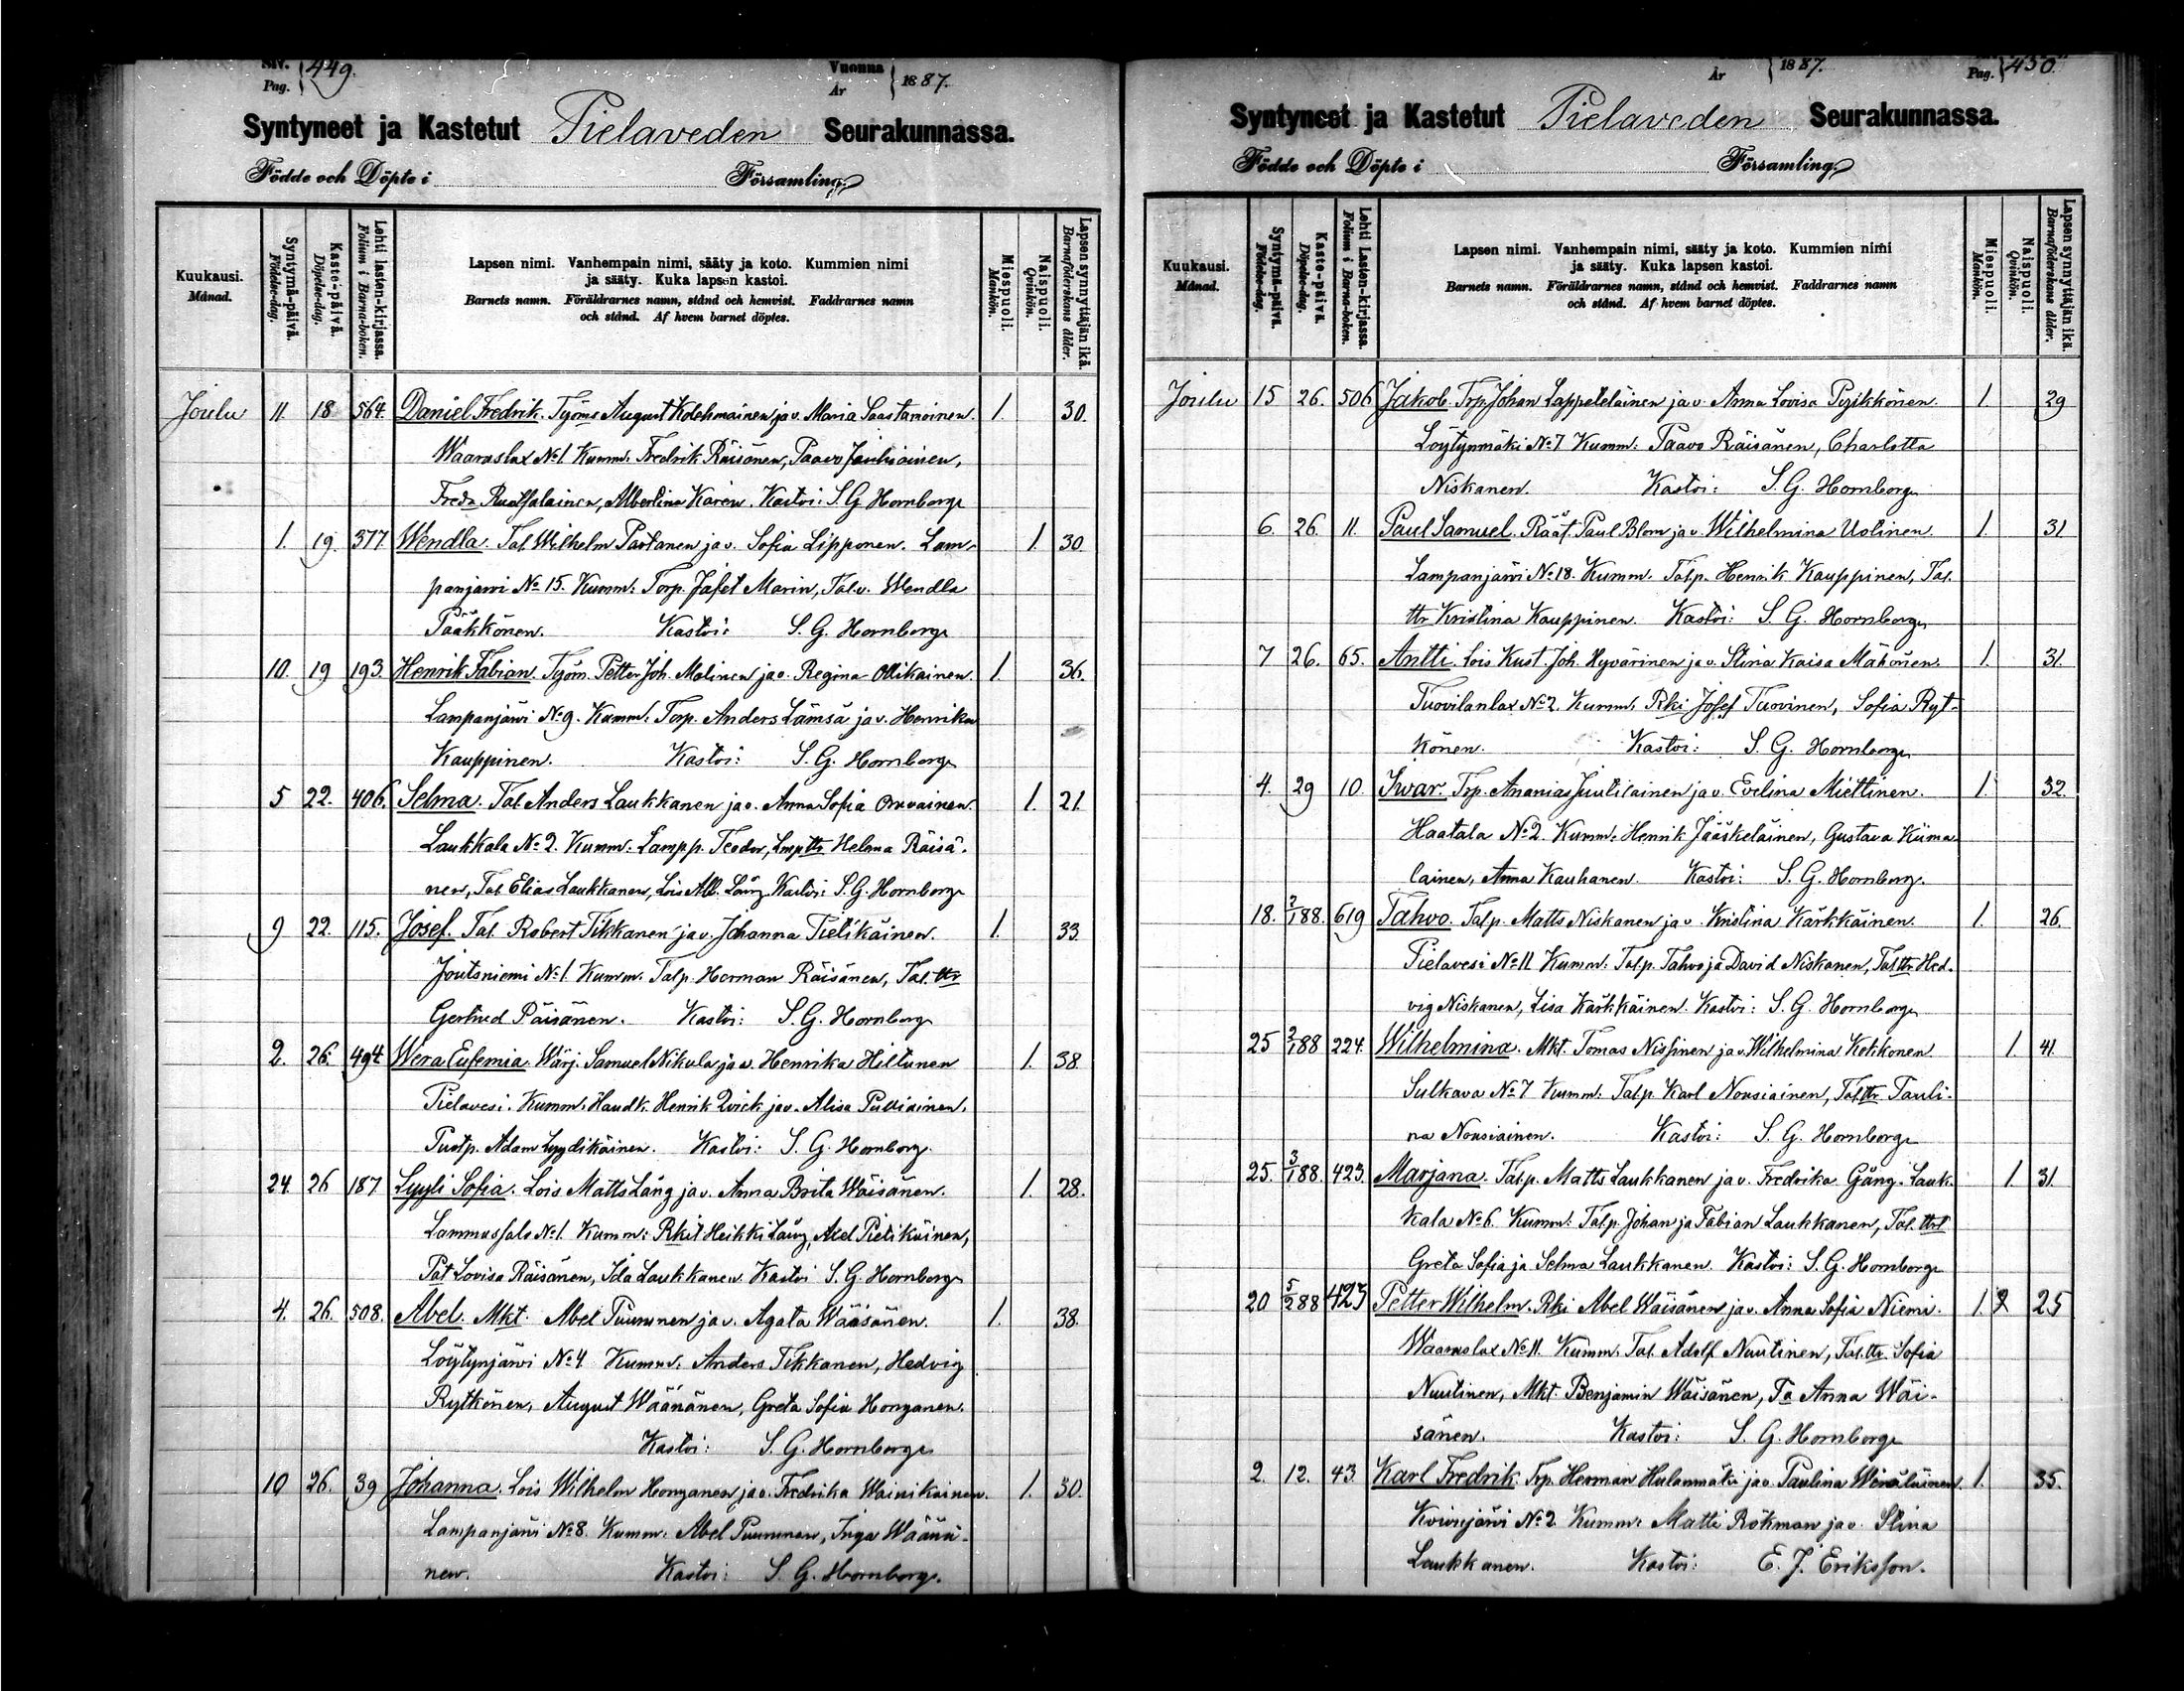 Siv. Pag. 449. Vuonna År 1887.
Syntyneet ja Kastetut Pielaveden Seurakunnassa.
Födde och Döpte i Församling.
Kuukausi. Månad.
Syntymä-päivä. Födelse-dag.
Kaste-päivä. Döpelse-dag.
Lehti lasten-kirjassa. Folium i Barna-boken.
Lapsen nimi. Vanhempain nimi, sääty ja koto. Kummien nimi
ja sääty. Kuka lapsen kastoi.
Barnets namn. Föräldrarnes namn, stånd och hemvist. Faddrarnes namn
och stånd. Af hvem barnet döptes.
Miespuoli. Mankön.
Naispuoli. Qvinkön.
Lapsen synnyttäjän ikä. Barnaföderskans ålder.
Joulu 11. 18 564. Daniel Fredrik. Työms August Kolehmainen ja v. Maria Saastamoinen. 1. 30.
Waaraslax No 1. Kumm. Fredrik Räisänen, Paavo Jauhiainen,
Freda Ruotsalainen, Albertina Karén. Kastoi: S. G. Hornborg
1. 19. 377 Wendla. Tal. Wilhelm Partanen ja v. Sofia Lipponen. Lam- 1. 30.
panjärvi No 15. Kumm: Torp. Jafet Marin, Tal.v. Wendla
Pääkkönen. Kastoi: S. G. Hornborg
10. 19 193. Henrik Fabian. Työm. Petter Joh. Malinen ja v. Regina Ollikainen. 1. 36.
Lampanjärvi No 9. Kumm: Torp. Anders Lämsä ja v. Henrika
Kauppinen. Kastoi: S. G. Hornborg
5 22. 406. Selma. Tal. Anders Laukkanen ja v. Anna Sofia Orvainen. 1. 21.
Laukkala No 2. Kumm: Lampp. Teodor, Lmpttr Helma Räisä-
nen, Tal. Elias Laukkanen, Lois Alb. Lång. Kastoi: S. G. Hornborg
9 22. 115. Josef. Tal. Robert Tikkanen ja v. Johanna Tielikäinen. 1. 33.
Joutsniemi No 1. Kumm. Talp. Herman Räisänen, Tal. ttr
Gertrud Päisänen. Kastoi: S. G. Hornborg
2. 26. 494 Wera Eufemia. Wärj. Samuel Nikula ja v. Henrika Hiltunen 1. 38.
Pielavesi. Kumm. Handk. Henrik Qvick ja v. Alisa Pulliainen,
Pustp. Adam Lyydikäinen. Kastoi: S. G. Hornborg.
24. 26 187 Lyyli Sofia. Lois Matts Lång ja v. Anna Brita Wäisänen. 1. 28.
Lammassalo No 1. Kumm: Rkit Heikki Lång, Axel Pielikäinen,
Pat Lovisa Räisänen, Ida Laukkanen. Kastoi S. G. Hornborg
4. 26. 508. Abel. Mkt. Abel Puumnen ja v. Agata Wäisänen. 1. 38.
Löytynjärvi No 4. Kumm. Anders Tikkanen, Hedvig
Rytkönen, August Wäänänen, Greta Sofia Honganen.
Kastoi: S. G. Hornborg
10 26. 39 Johanna. Lois Wilhelm Honganen ja v. Fredrika Wainikainen. 1. 30.
Lampanjärvi No 8. Kumm: Abel Puumnen, Inga Wäänä-
nen. Kastoi: S. G. Hornborg.
År 1887. Pag. 450.
Syntyneet ja Kastetut Pielaveden Seurakunnassa.
Födde och Döpte i Församling.
Kuukausi. Månad.
Syntymä-päivä. Födelse-dag.
Kaste-päivä. Döpelse-dag.
Lehti Lasten-kirjassa. Folium i Barna-boken.
Lapsen nimi. Vanhempain nimi, sääty ja koto. Kummien nimi
ja sääty. Kuka lapsen kastoi.
Barnets namn. Föräldrarnes namn, stånd och hemvist. Faddrarnes namn
och stånd. Af hvem barnet döptes.
Miespuoli. Mankön.
Naispuoli. Qvinkön.
Lapsen synnyttäjän ikä. Barnaföderskans ålder.
Joulu 15 26. 506 Jakob. Trp. Johan Lappeteläinen ja v. Anna Lovisa Pyykkönen. 1. 29
Löytynmäki No 7 Kumm: Paavo Räisänen, Charlotta
Niskanen. Kastoi: S. G. Hornborg
6. 26. 11. Paul Samuel. Räät. Paul Blom ja v. Wilhelmina Ustinen. 1. 31
Lampanjärvi No 18. Kumm. Talp. Henrik Kauppinen, Tal.
ttr Kristina Kauppinen. Kastoi: S. G. Hornborg
7 26. 65. Antti. Lois Kust. Joh. Hyvärinen ja v. Stina Kaisa Mähönen. 1. 31.
Tuovilanlax No 2. Kumm. Rki Josef Tuovinen, Sofia Ryt-
könen. Kastoi: S. G. Hornborg
4. 29 10. Iwar. Trp. Ananias Juutilainen ja v. Evelina Miettinen. 1. 32.
Haatala No 2. Kumm: Henrik Jääskeläinen, Gustava Kiima-
lainen, Anna Kauhanen. Kastoi: S. G. Hornborg.
18. 2/1 88. 619 Tahvo. Talp. Matts Niskanen ja v. Kristina Kärkkäinen. 1. 26.
Pielavesi No 11 Kumm: Talp. Tahvo ja David Niskanen, Tal.ttr Hed-
vig Niskanen, Lisa Kärkkäinen. Kastoi: S. G. Hornborg
25 2/1 88 224. Wilhelmina. Mkt. Tomas Nissinen ja v. Wilhelmina Kekkonen. 1. 41.
Sulkava No 7 Kumm: Talp. Karl Nousiainen, Tal.ttr Pauli-
na Nousiainen. Kastoi: S. G. Hornborg
25. 3/1 88. 423. Marjana. Talp. Matts Laukkanen ja v. Fredrika Gång. Lauk- 1 31.
kala No 6. Kumm: Talp. Johan ja Fabian Laukkanen, Tal. ttret
Greta Sofia ja Selma Laukkanen. Kastoi: S. G. Hornborg
20 5/2 88 423 Petter Wilhelm. Rki Abel Wäisänen ja v. Anna Sofia Niemi. 1. 25
Waaraslax No 11. Kumm. Tal. Adolf Nuutinen, Tal.ttr Sofia
Nuutinen, Mkt. Benjamin Wäisänen, Ta Anna Wäi-
sänen. Kastoi: S. G. Hornborg
2. 12. 43. Karl Fredrik. Trp. Herman Hulanmäki ja v. Paulina 1. 35.
Koivujärvi No 2. Kumm: Matti Rökman ja v. Stina
Laukkanen. Kastoi: E. J. Eriksson.